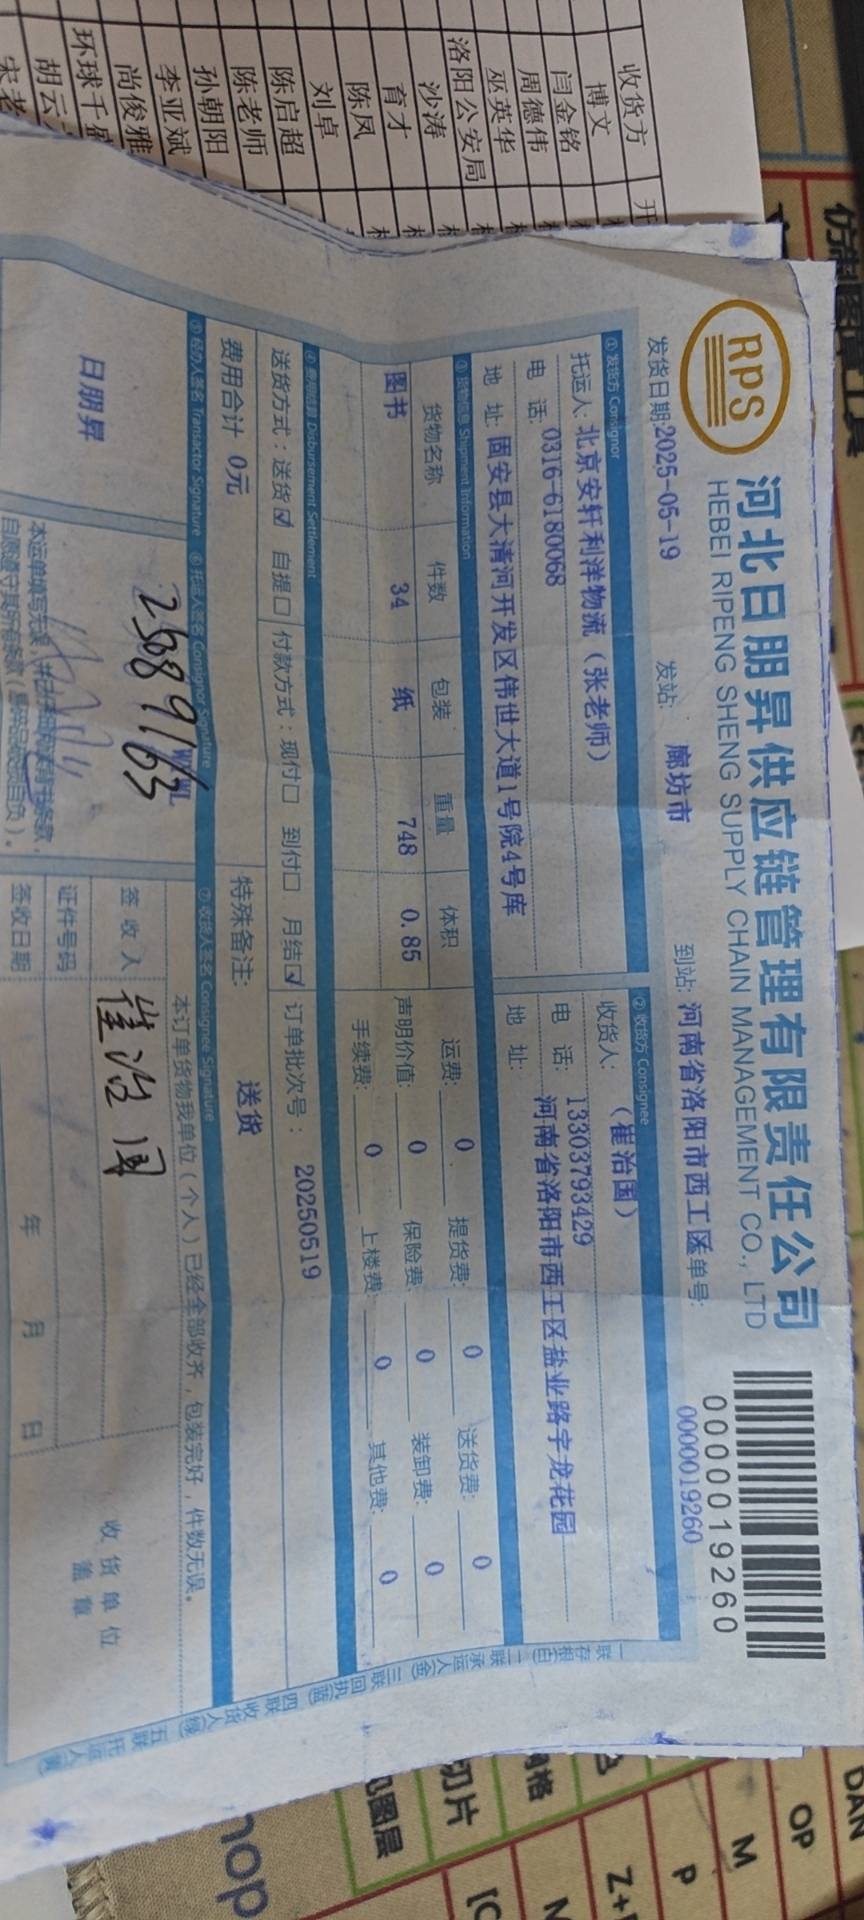 收货方
博文
闫金铭
周德伟
巫英华
洛阳公安局
沙涛
育才
陈凤
刘卓
陈启超
陈老师
孙朝阳
李亚斌
尚俊雅
环球千
胡云
宋老
RPS
河北日朋昇供应链管理有限责任公司
HEBEI RIPENG SHENG SUPPLY CHAIN MANAGEMENT CO., LTD
0000019260
发货日期:2025-05-19 发站: 廊坊市 到站: 河南省洛阳市西工区 单号: 0000019260
① 发货方 Consignor ② 收货方 Consignee
托运人: 北京安轩利洋物流（张老师） 收货人: （崔治国）
电 话: 0316-6180068 电 话: 13303793429
地 址: 固安县大清河开发区伟世大道1号院4号库 地 址: 河南省洛阳市西工区盐业路宇龙花园
③ 货物信息 Shipment Information
货物名称 件数 包装 重量 体积 运费: 0 提货费: 0 送货费: 0
图书 34 纸 748 0.85 声明价值: 0 保险费: 0 装卸费: 0
手续费: 0 上楼费: 0 其他费: 0
④ 费用结算 Disbursement Settlement
送货方式: 送货☑ 自提□ 付款方式: 现付□ 到付□ 月结☑ 订单批次号: 20250519
费用合计 0元 特殊备注: 送货
⑤ 经办人签名 Transactor Signature ⑥ 托运人签名 Consignor Signature ⑦ 收货人签名 Consignee Signature
本订单货物我单位（个人）已经全部收齐，包装完好，件数无误。
日朋昇
签收人 崔治国
证件号码
签收日期 年 月 日
收货单位
盖章
一联存根(白) 二联承运人(金) 三联回执(蓝) 四联收货人(绿) 五联托运人(黄)
切片
图层
DAN
OP
M
P
Z+
hop